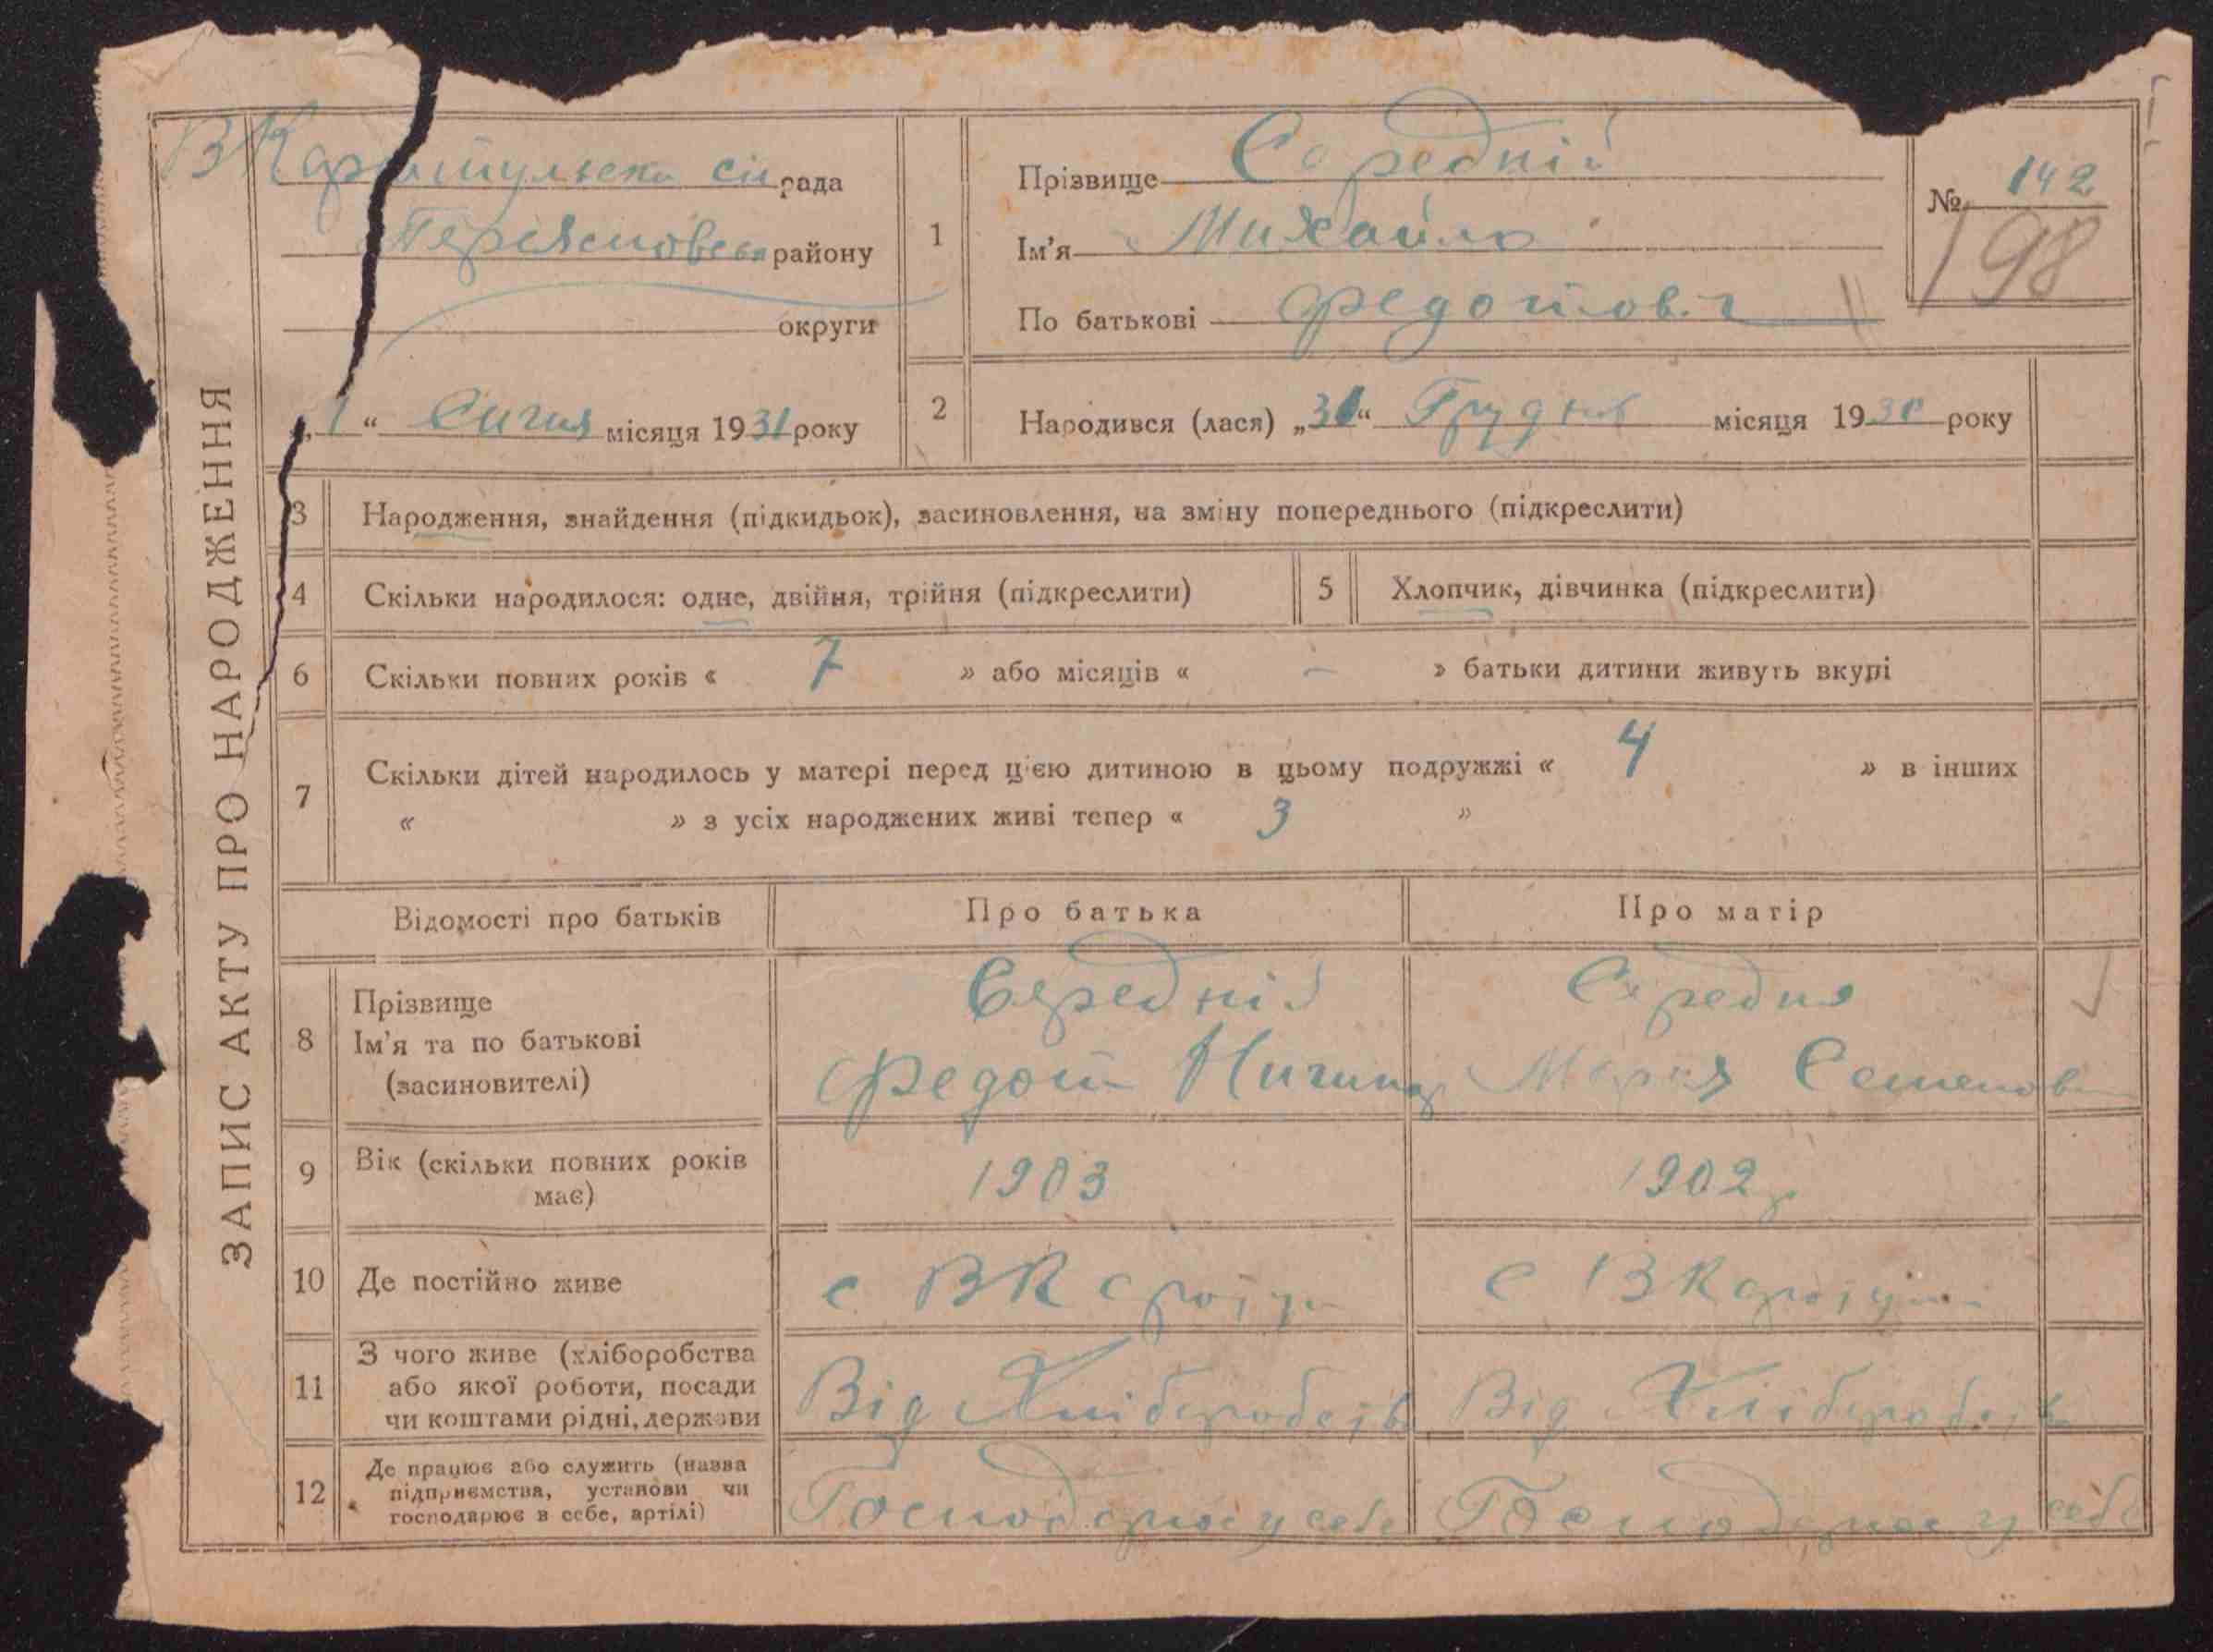 ЗАПИС АКТУ ПРО НАРОДЖЕННЯ
сіл рада
району
округи
„1“ Січня місяця 1931 року
1
Прізвище Середній
Ім'я Михайло
По батькові Федотов.
№ 142
198
2
Народився (лася) „31“ Грудня місяця 1930 року
3 Народження, знайдення (підкидьок), засиновлення, на зміну попереднього (підкреслити)
4 Скільки народилося: одне, двійня, трійня (підкреслити)
5 Хлопчик, дівчинка (підкреслити)
6 Скільки повних років « 7 » або місяців « – » батьки дитини живуть вкупі
7 Скільки дітей народилось у матері перед цією дитиною в цьому подружжі « 4 » в інших
« » з усіх народжених живі тепер « 3 »
Відомості про батьків
Про батька
Про матір
8 Прізвище
Ім'я та по батькові
(засиновителі)
Середній
Федот
Середня
Мария Семенов
9 Вік (скільки повних років
має)
1903
1902 р
10 Де постійно живе
с ВК
с ВК
11 З чого живе (хліборобства
або якої роботи, посади
чи коштами рідні, держави
Від Хліборобств
Від Хліборобств
12 Де працює або служить (назва
підприємства, установи чи
господарює в себе, артілі)
Господарює у себе
Господарює у себе